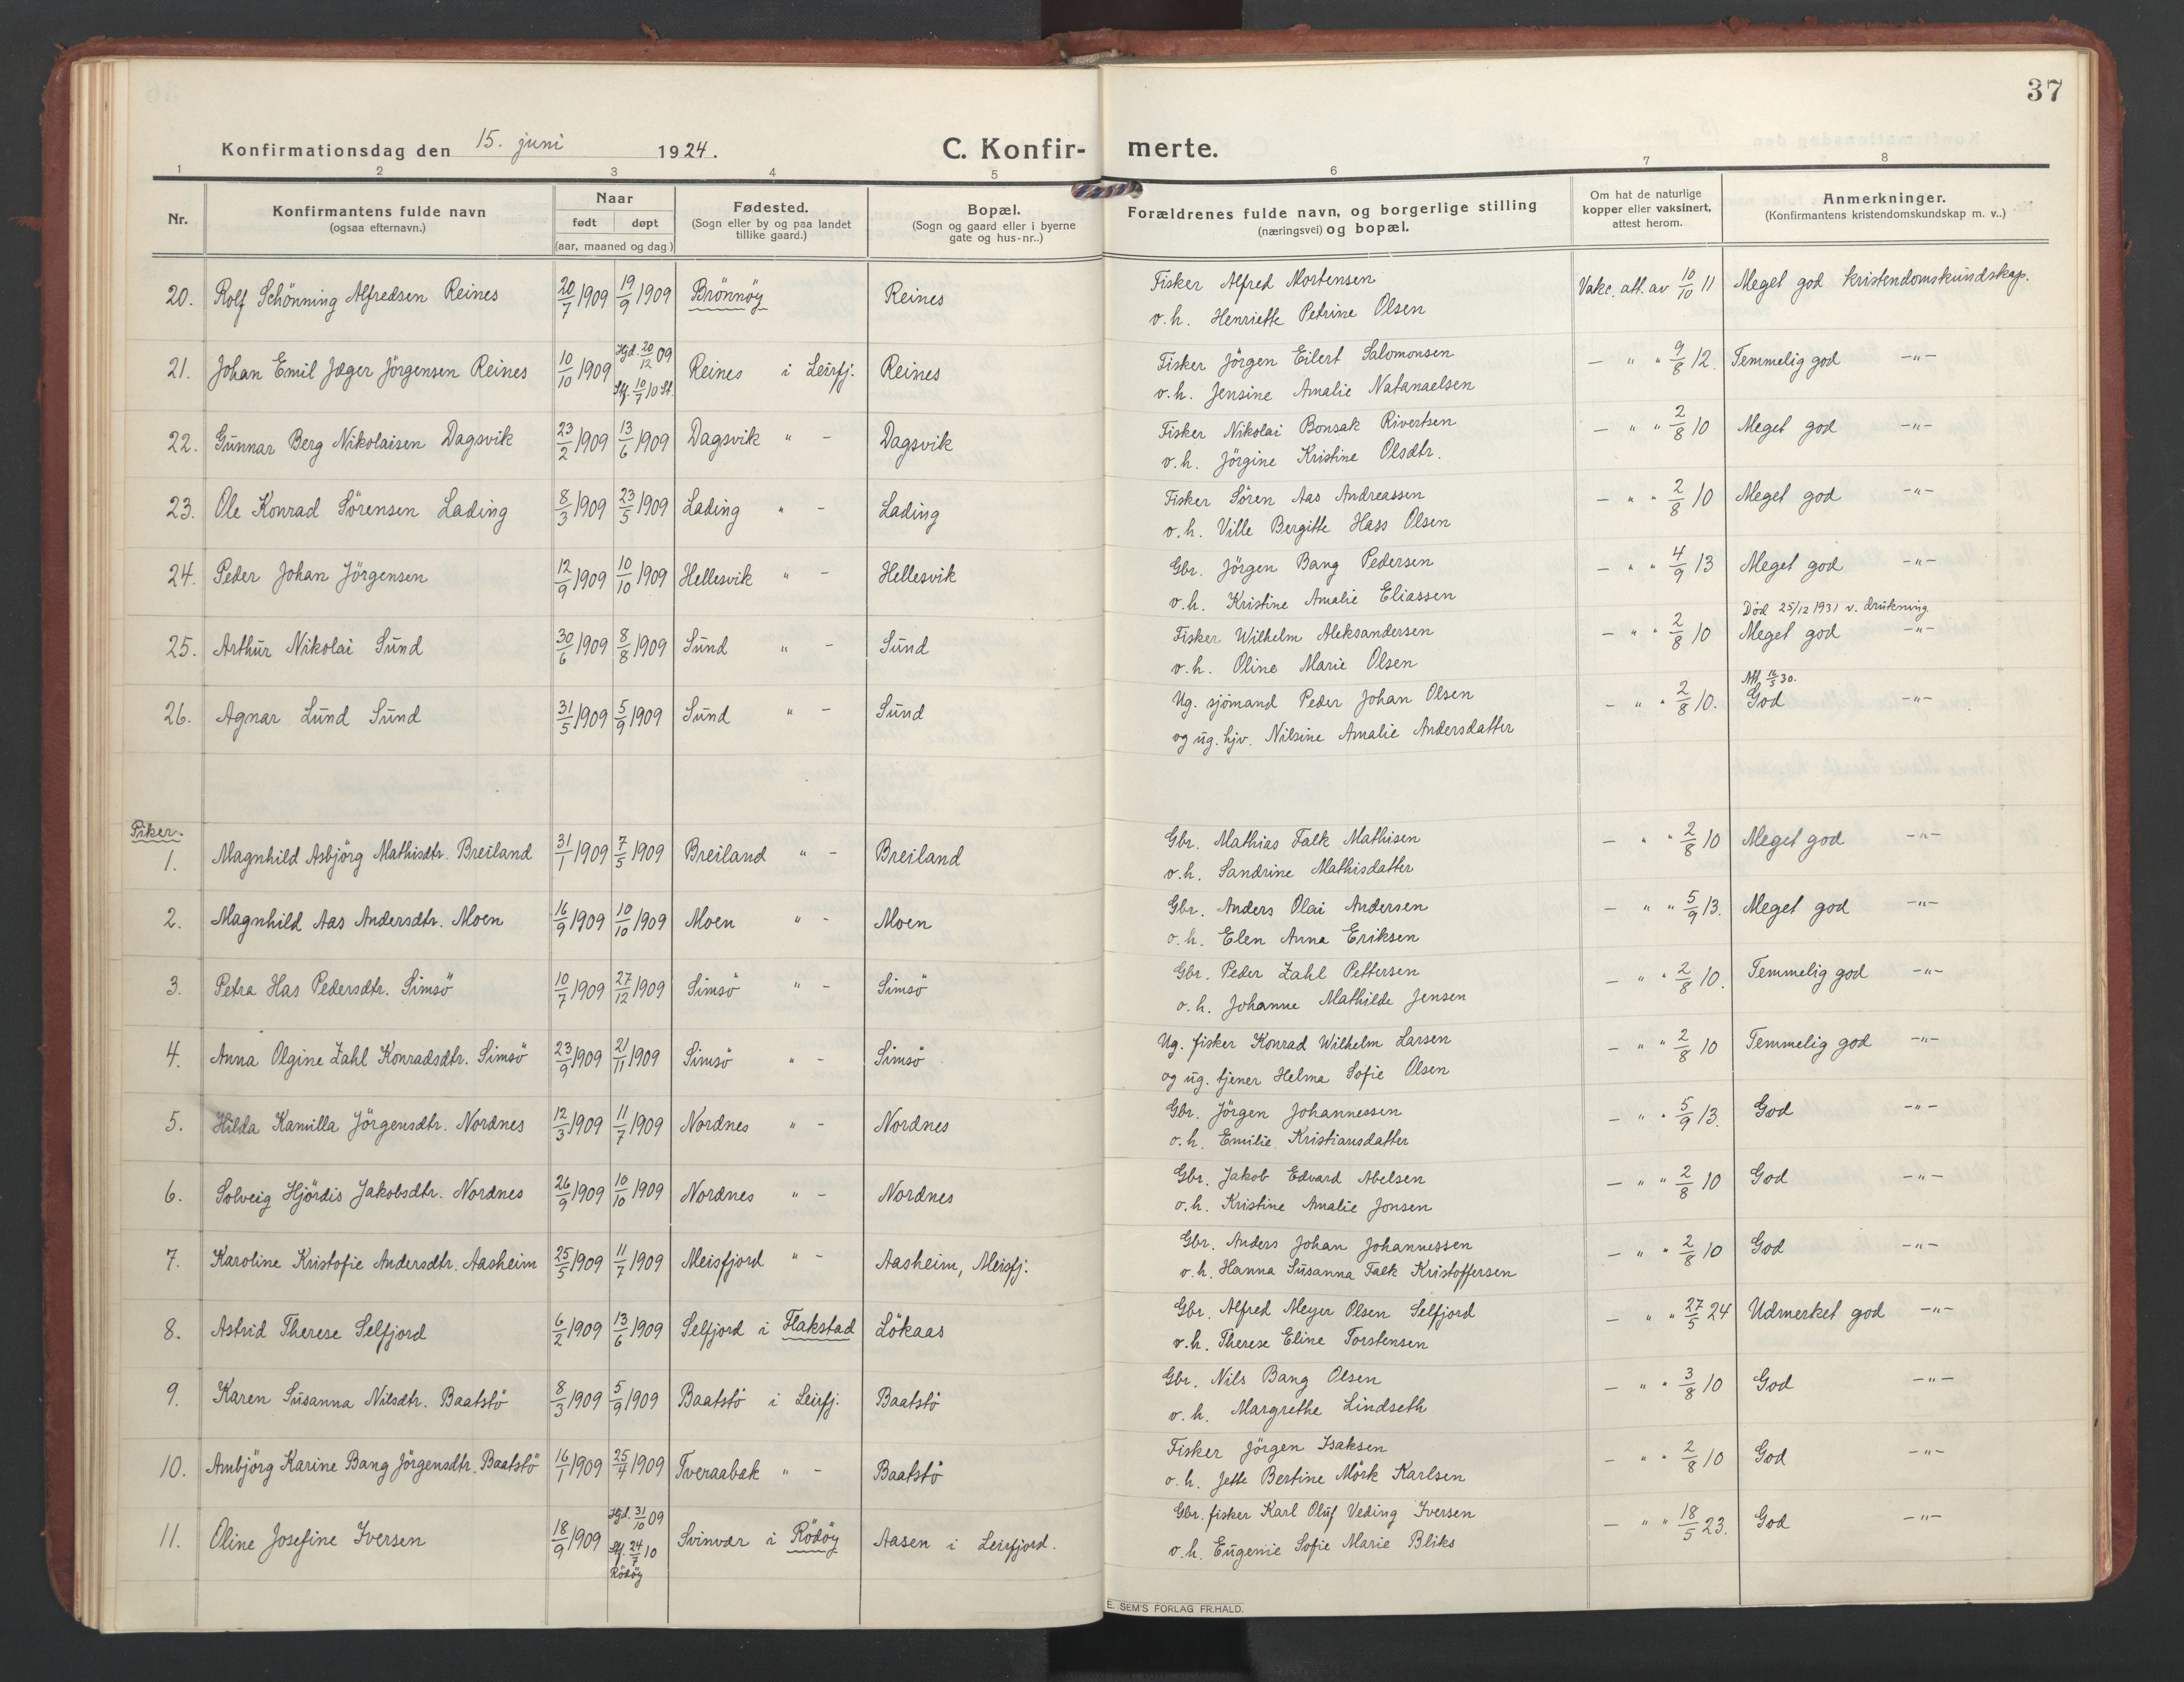 37
Konfirmationsdag den 15. juni 1924. C. Konfir- merte.
1 2 3 4 5 6 7 8
Nr. Konfirmantens fulde navn (ogsaa efternavn.) Naar født døpt (aar, maaned og dag.) Fødested. (Sogn eller by og paa landet tillike gaard.) Bopæl. (Sogn og gaard eller i byerne gate og hus-nr..) Forældrenes fulde navn, og borgerlige stilling (næringsvei) og bopæl. Om hat de naturlige kopper eller vaksinert, attest herom. Anmerkninger. (Konfirmantens kristendomskundskap m. v..)
20. Rolf Schönning Alfredsen Reines 20/7 1909 19/9 1909 Brönnöy Reines Fisker Alfred Mortensen Vakc. att. av 10/10 11 Meget god kristendomskundskap.
o. h. Henriette Petrine Olsen
21. Johan Emil Jæger Jörgensen Reines 10/10 1909 Hjd. 20/12 09 Stf. 10/7 10 St. Reines i Leirfj. Reines Fisker Jörgen Eilert Salomonsen — " " 9/8 12. Temmelig god —"—
o. h. Jensine Amalie Natanaelsen
22. Gunnar Berg Nikolaisen Dagsvik 23/2 1909 13/6 1909 Dagsvik " - Dagsvik Fisker Nikolai Bonsak Rivertsen — " " 2/8 10 Meget god —"—
o. h. Jörgine Kristine Olsdtr.
23. Ole Konrad Sörensen Lading 8/3 1909 23/5 1909 Lading " - Lading Fisker Sören Aas Andreassen — " " 2/8 10 Meget god —"—
o. h. Ville Bergitte Hass Olsen
24. Peder Johan Jörgensen 12/9 1909 10/10 1909 Hellesvik " - Hellesvik Gbr. Jörgen Bang Pedersen — " " 4/9 13 Meget god —"—
o. h. Kristine Amalie Eliassen
Död 25/12 1931 v. drukning.
25. Arthur Nikolai Sund 30/6 1909 8/8 1909 Sund " - Sund Fisker Wilhelm Aleksandersen — " " 2/8 10 Meget god —"—
o. h. Oline Marie Olsen
Att. 16/5 30.
26. Agnar Lund Sund 31/5 1909 5/9 1909 Sund " - Sund Ug. sjömand Peder Johan Olsen — " " 2/8 10. God —"—
og ug. hjv. Nilsine Amalie Andersdatter
Piker.
1. Magnhild Asbjörg Mathisdtr. Breiland 31/1 1909 7/5 1909 Breiland " - Breiland Gbr. Mathias Falk Mathisen — " " 2/8 10 Meget god —"—
o. h. Sandrine Mathisdatter
2. Magnhild Aas Andersdtr. Moen 16/9 1909 10/10 1909 Moen " - Moen Gbr. Anders Olai Andersen — " " 5/9 13. Meget god —"—
o. h. Elen Anna Eriksen
3. Petra Has Pedersdtr. Simsö 10/7 1909 27/12 1909 Simsö " - Simsö Gbr. Peder Zahl Pettersen — " " 2/8 10. Temmelig god —"—
o. h. Johanne Mathilde Jensen
4. Anna Olgine Zahl Konradsdtr. Simsö 23/9 1909 21/11 1909 Simsö " - Simsö Ug. fisker Konrad Wilhelm Larsen — " " 2/8 10 Temmelig god —"—
og ug. tjener Helma Sofie Olsen
5. Hilda Kamilla Jörgensdtr. Nordnes 12/3 1909 11/7 1909 Nordnes " - Nordnes Gbr. Jörgen Johannessen — " " 5/9 13. God —"—
o. h. Emilie Kristiansdatter
6. Solveig Hjördis Jakobsdtr. Nordnes 26/9 1909 10/10 1909 Nordnes " - Nordnes Gbr. Jakob Edvard Abelsen — " " 2/8 10 God —"—
o. h. Kristine Amalie Jonsen
7. Karoline Kristofie Andersdtr. Aasheim 25/5 1909 11/7 1909 Meisfjord " - Aasheim, Meisfj. Gbr. Anders Johan Johannessen — " " 2/8 10 God —"—
o. h. Hanna Susanna Falk Kristoffersen
8. Astrid Therese Selfjord 6/2 1909 13/6 1909 Selfjord i Flakstad Lökaas Gbr. Alfred Meyer Olsen Selfjord — " " 27/5 24 Udmerket god —"—
o. h. Therese Eline Torstensen
9. Karen Susanna Nilsdtr. Baatstö 8/3 1909 5/9 1909 Baatstö i Leirfj. Baatstö Gbr. Nils Bang Olsen — " " 3/8 10 God —"—
o. h. Margrethe Lindseth
10. Ambjörg Karine Bang Jörgensdtr. Baatstö 16/1 1909 25/4 1909 Tveraabak " - Baatstö Fisker Jörgen Isaksen — " " 2/8 10 God —"—
o. h. Jette Bertine Mörk Karlsen
11. Oline Josefine Iversen 18/9 1909 Hjd. 31/10 09 Stf. 24/7 10 Rödöy Svinvær i Rödöy Aasen i Leirfjord. Gbr. fisker Karl Oluf Veding Iversen — " " 18/5 23. God —"—
o. h. Eugenie Sofie Marie Bliks
E. SEM'S FORLAG FR.HALD.